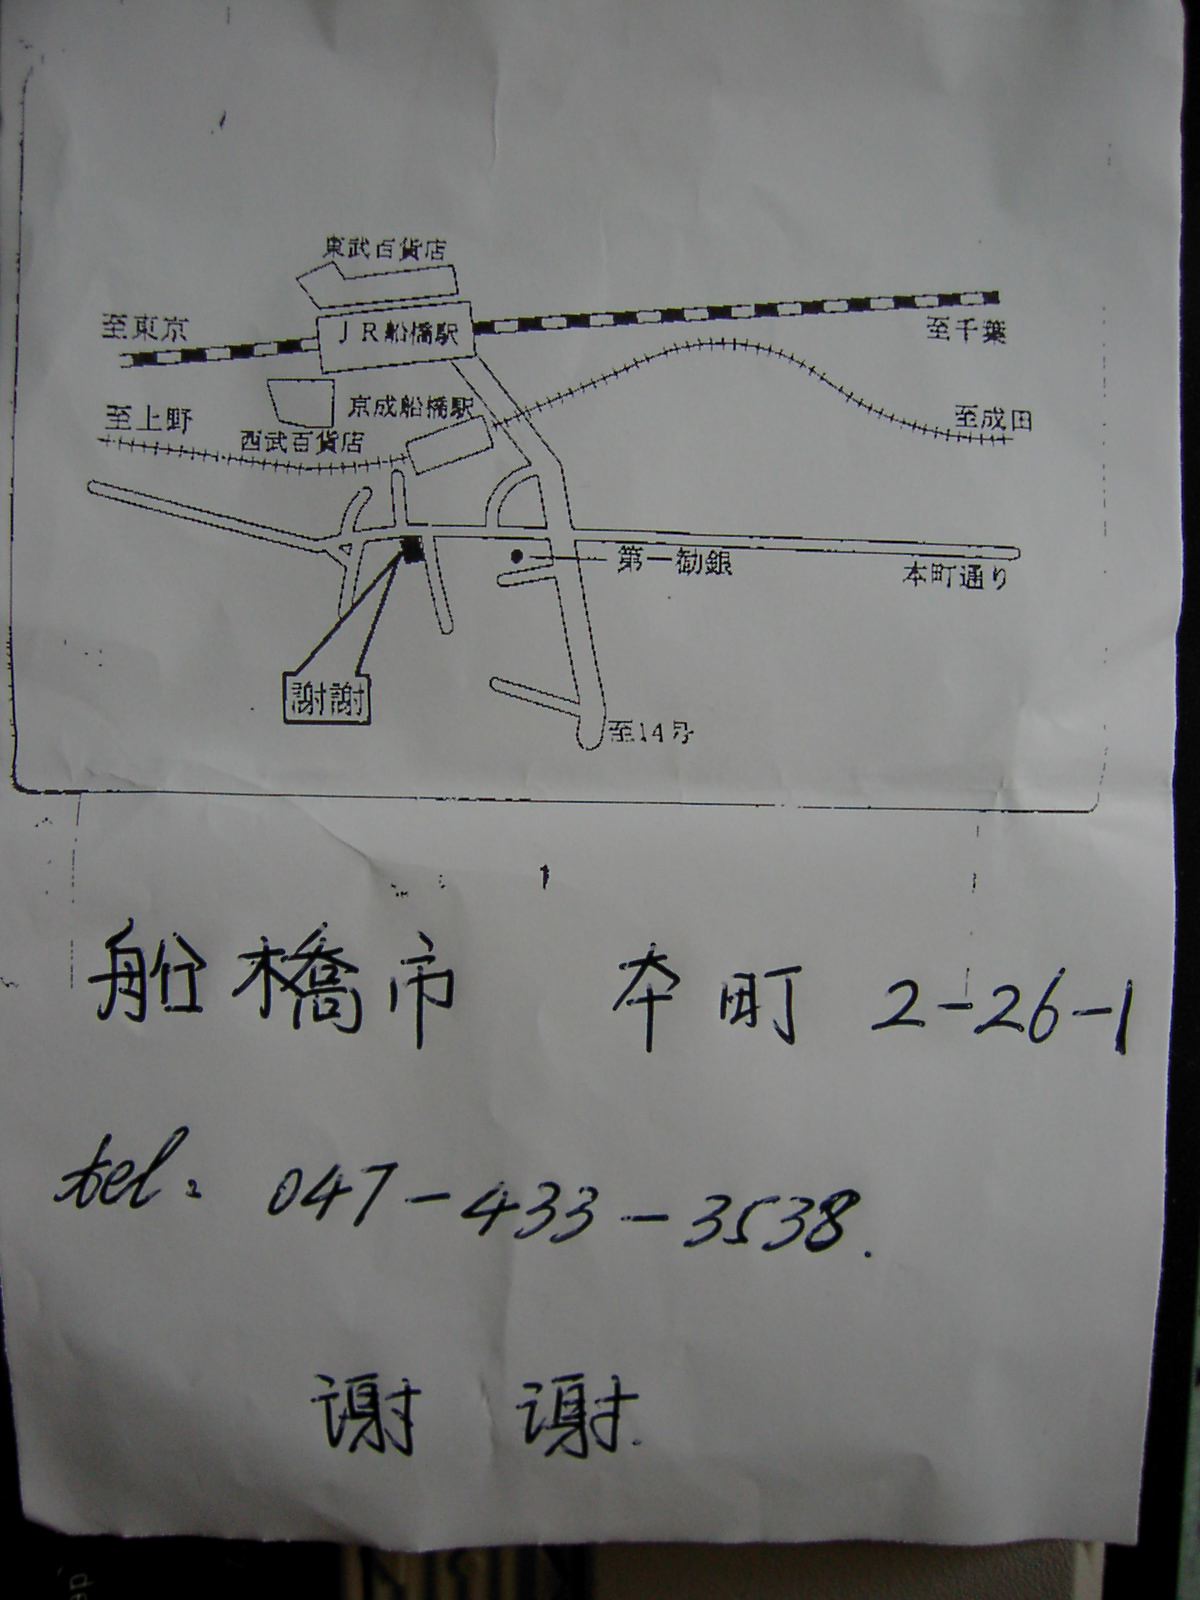 東武百貨店
至東京
JR船橋駅
至千葉
至上野
京成船橋駅
至成田
西武百貨店
第一勧銀
本町通り
謝謝
至14号
船橋市 本町 2-26-1
tel: 047-433-3538.
谢 谢.